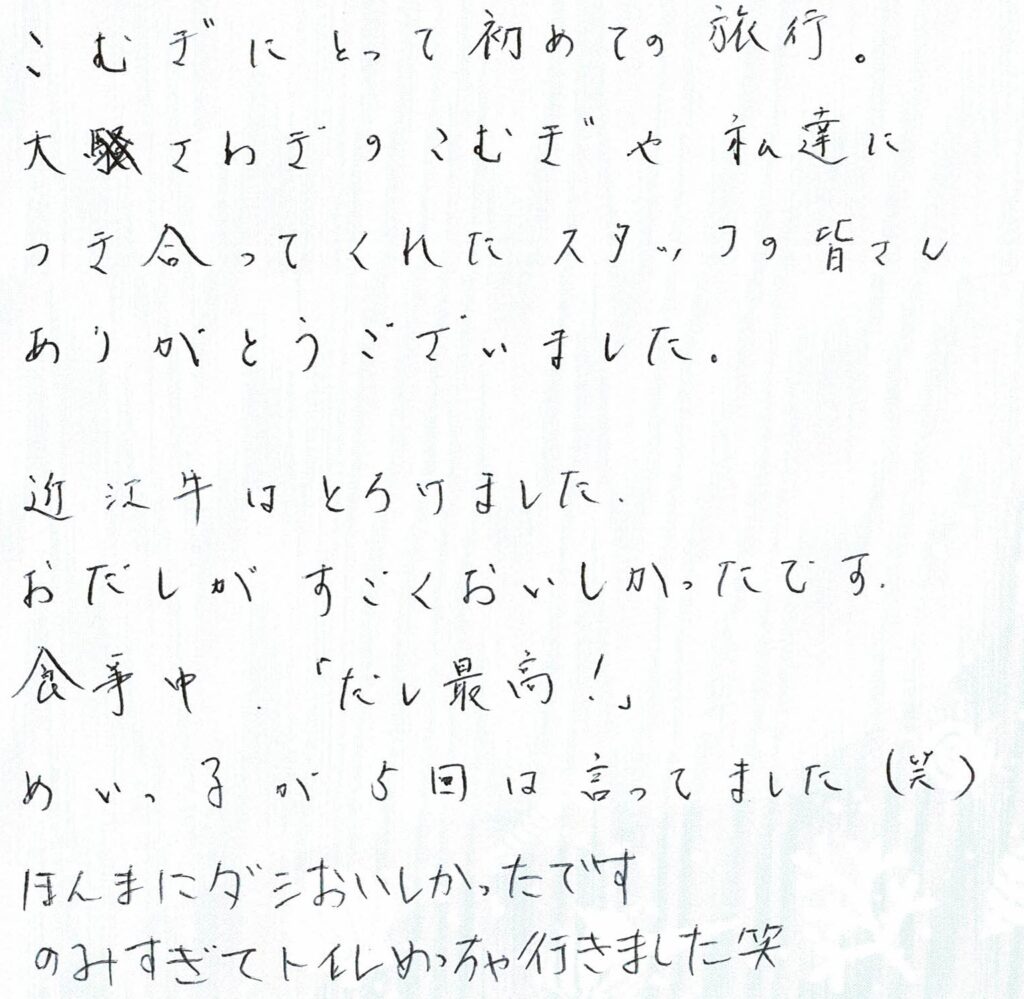 こむぎにとって初めての旅行。
大さわぎのこむぎや私達に
つき合ってくれたスタッフの皆さん
ありがとうございました。
近江牛はとろけました.
おだしがすごくおいしかったです.
食事中.「だし最高!」
めいっ子が5回は言ってました(笑)
ほんまにダシおいしかったです
のみすぎてトイレめっちゃ行きました笑